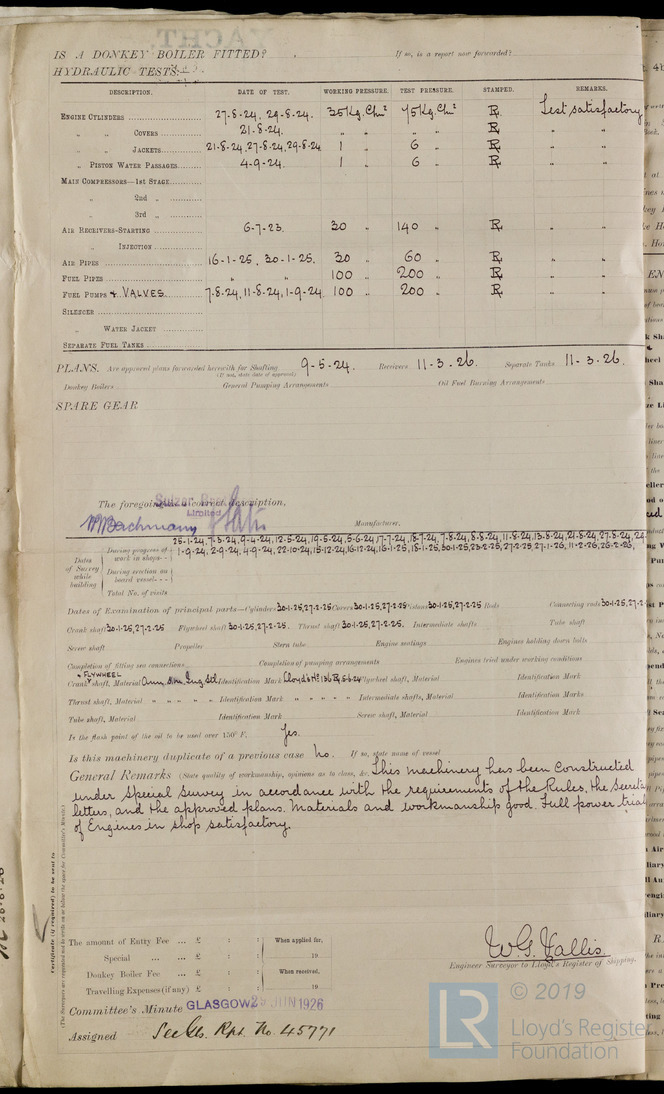 IS A DONKEY BOILER FITTED? If so, is a report now forwarded?
HYDRAULIC TESTS:—
DESCRIPTION. DATE OF TEST. WORKING PRESSURE. TEST PRESSURE. STAMPED. REMARKS.
ENGINE CYLINDERS 27-8-24, 29-8-24. 35 Kg. Cm² 75 Kg. Cm² R Test satisfactory
" " COVERS 21-8-24. " " " " R " "
" " JACKETS 21-8-24, 27-8-24, 29-8-24 1 " 6 " R " "
" PISTON WATER PASSAGES 4-9-24. 1 " 6 " R " "
MAIN COMPRESSORS—1st STAGE
" 2nd "
" 3rd "
AIR RECEIVERS-STARTING 6-7-23. 30 " 140 " R " "
" INJECTION
AIR PIPES 16-1-25, 30-1-25. 30 " 60 " R " "
FUEL PIPES " " 100 " 200 " R " "
FUEL PUMPS & VALVES 7-8-24, 11-8-24, 1-9-24. 100 " 200 " R " "
SILENCER
" WATER JACKET
SEPARATE FUEL TANKS
PLANS. Are approved plans forwarded herewith for Shafting 9-5-24. Receivers 11-3-26. Separate Tanks 11-3-26.
(If not, state date of approval)
Donkey Boilers General Pumping Arrangements Oil Fuel Burning Arrangements
SPARE GEAR
The foregoing is a correct description,
Sulzer
Limited
Manufacturer.
Dates of Survey while building
During progress of work in shops - - 25-1-24, 7-3-24, 9-4-24, 12-5-24, 19-5-24, 5-6-24, 17-7-24, 18-7-24, 7-8-24, 8-8-24, 11-8-24, 13-8-24, 21-8-24, 27-8-24,
1-9-24, 2-9-24, 4-9-24, 22-10-24, 15-12-24, 16-12-24, 16-1-25, 18-1-25, 30-1-25, 23-2-25, 27-2-25, 27-1-26, 11-2-26, 26-2-26,
During erection on board vessel - - -
Total No. of visits
Dates of Examination of principal parts—Cylinders 30-1-25, 27-2-25 Covers 30-1-25, 27-2-25 Pistons 30-1-25, 27-2-25 Rods Connecting rods 30-1-25, 27-2
Crank shaft 30-1-25, 27-2-25 Flywheel shaft 30-1-25, 27-2-25. Thrust shaft 30-1-25, 27-2-25. Intermediate shafts Tube shaft
Screw shaft Propeller Stern tube Engine seatings Engines holding down bolts
Completion of fitting sea connections Completion of pumping arrangements Engines tried under working conditions
& FLYWHEEL
Crank shaft, Material Identification Mark Lloyd's Flywheel shaft, Material Identification Mark
Thrust shaft, Material " " " " Identification Mark " " " " Intermediate shafts, Material Identification Marks
Tube shaft, Material Identification Mark Screw shaft, Material Identification Mark
Is the flash point of the oil to be used over 150° F. Yes.
Is this machinery duplicate of a previous case No. If so, state name of vessel
General Remarks (State quality of workmanship, opinions as to class, &c. This machinery has been constructed
under special survey in accordance with the requirements of the Rules, the Secretary's
letters, and the approved plans. Materials and workmanship good. Full power trial
of Engines in shop satisfactory.
Certificate (if required) to be sent to
(The Surveyors are requested not to write on or below the space for Committee's Minute.)
The amount of Entry Fee ... £ : : When applied for,
Special ... ... £ : : 19
Donkey Boiler Fee ... £ : : When received,
Travelling Expenses (if any) £ : : 19
W. G. Vallis.
Engineer Surveyor to Lloyd's Register of Shipping.
Committee's Minute GLASGOW 29 JUN 1926
Assigned See Gls. Rpt. No. 45771
LR © 2019
Lloyd's Register
Foundation